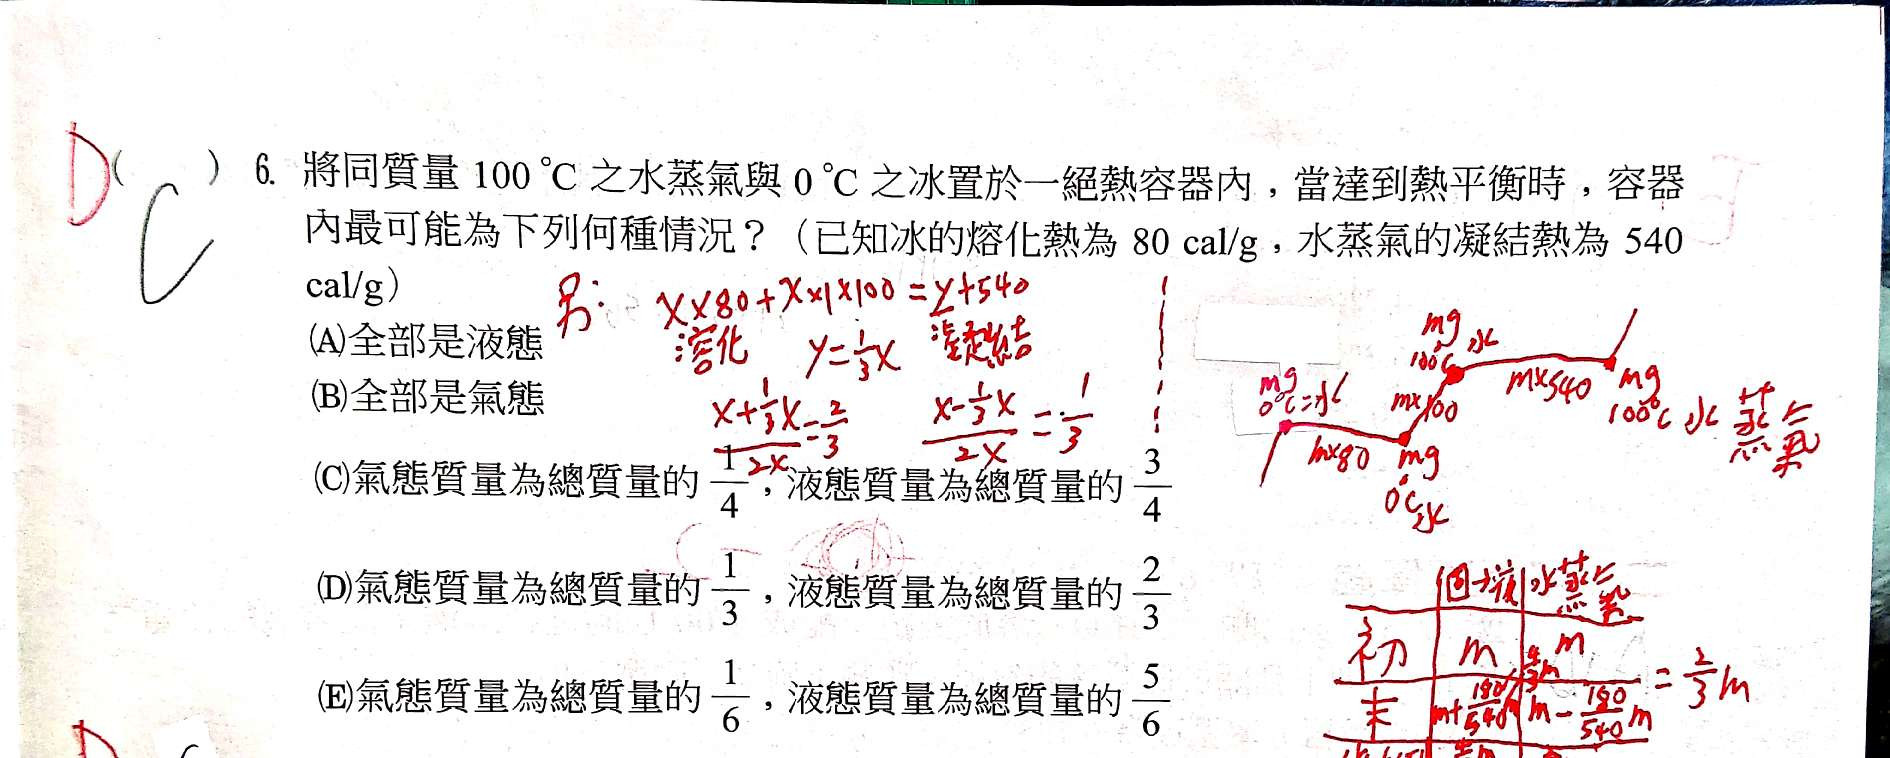 D( C ) 6. 將同質量 100 ℃ 之水蒸氣與 0 ℃ 之冰置於一絕熱容器內，當達到熱平衡時，容器
內最可能為下列何種情況？（已知冰的熔化熱為 80 cal/g，水蒸氣的凝結熱為 540
cal/g）
另: X×80+X×1×100=y+540
溶化 凝結
y=1/3X
(A)全部是液態
(B)全部是氣態
(X+1/3X)/2X=2/3 (X-1/3X)/2X=1/3
(C)氣態質量為總質量的 1/4，液態質量為總質量的 3/4
(D)氣態質量為總質量的 1/3，液態質量為總質量的 2/3
(E)氣態質量為總質量的 1/6，液態質量為總質量的 5/6
mg
100℃ 水
m×540
mg
100℃ 水蒸氣
m×100
mg
m×80
mg
0℃
水
固→液 水蒸氣
初 m m
末 m+180/540m 4/3m m-180/540m =2/3m
D